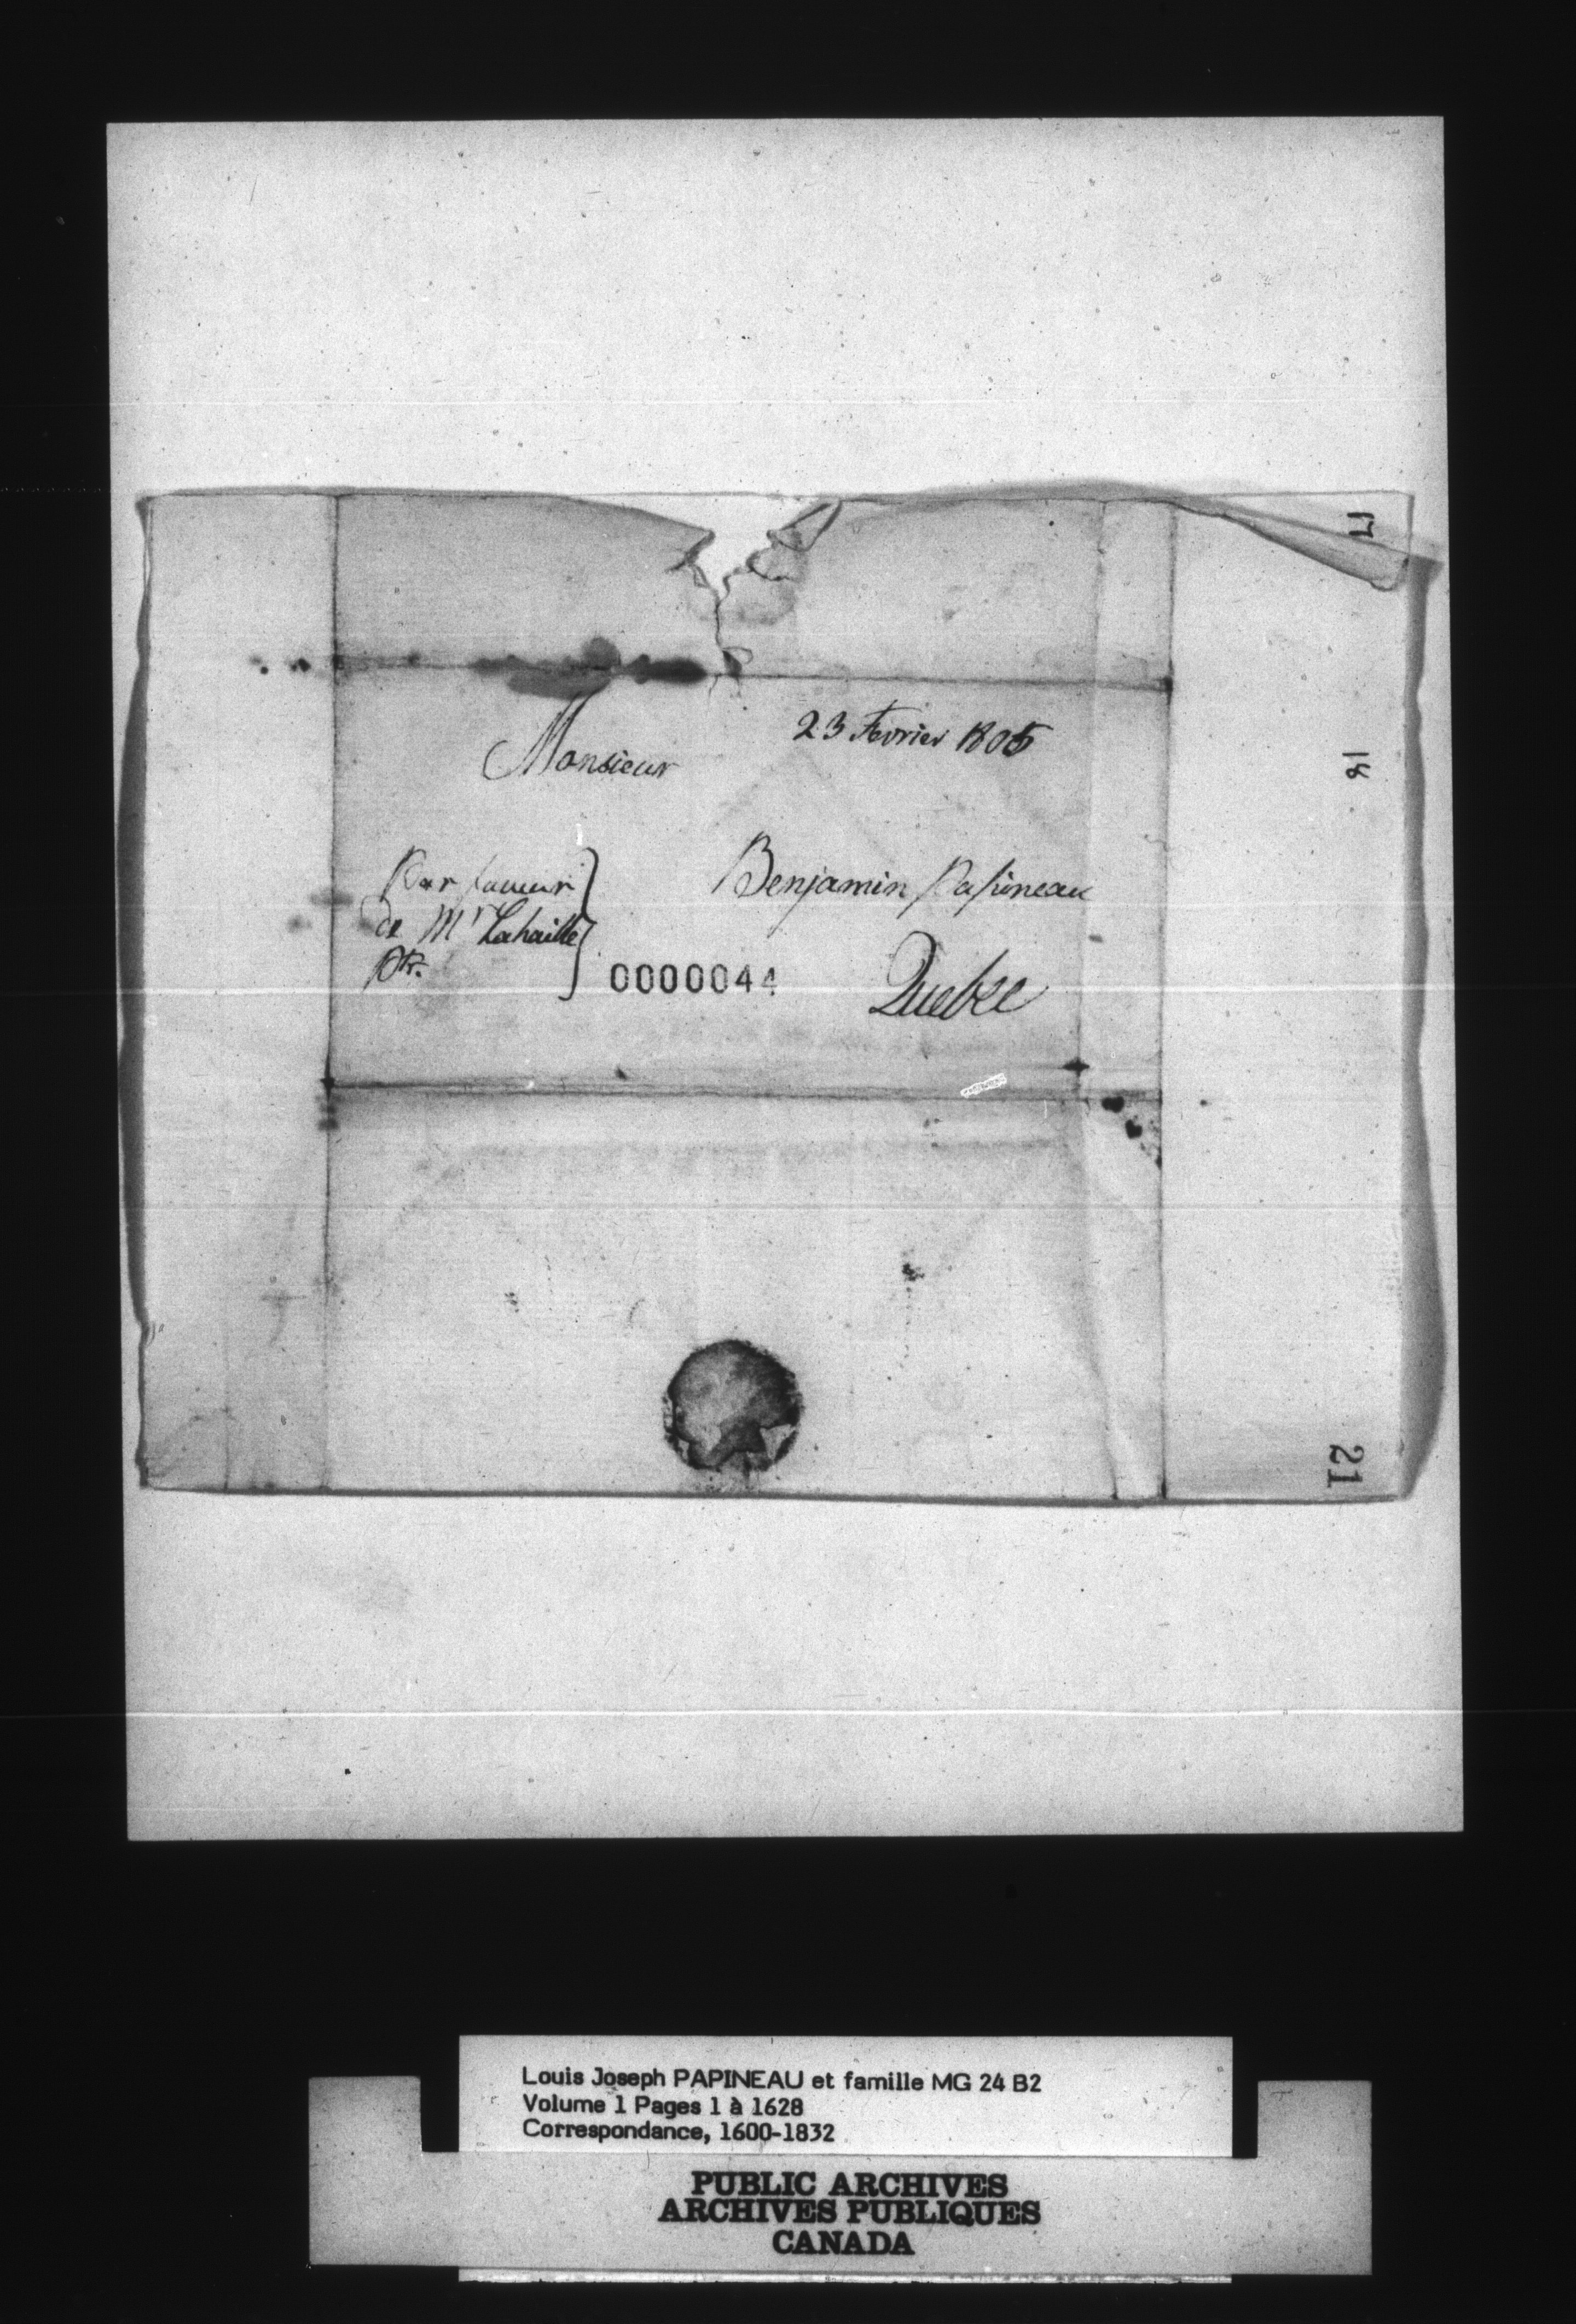 17
23 Fevrier 1805
Monsieur
18
Par faveur
de Mr Lahaille
Ptr.
Benjamin Papineau
0000044
Quebec
21
Louis Joseph PAPINEAU et famille MG 24 B2
Volume 1 Pages 1 à 1628
Correspondance, 1600-1832
PUBLIC ARCHIVES
ARCHIVES PUBLIQUES
CANADA